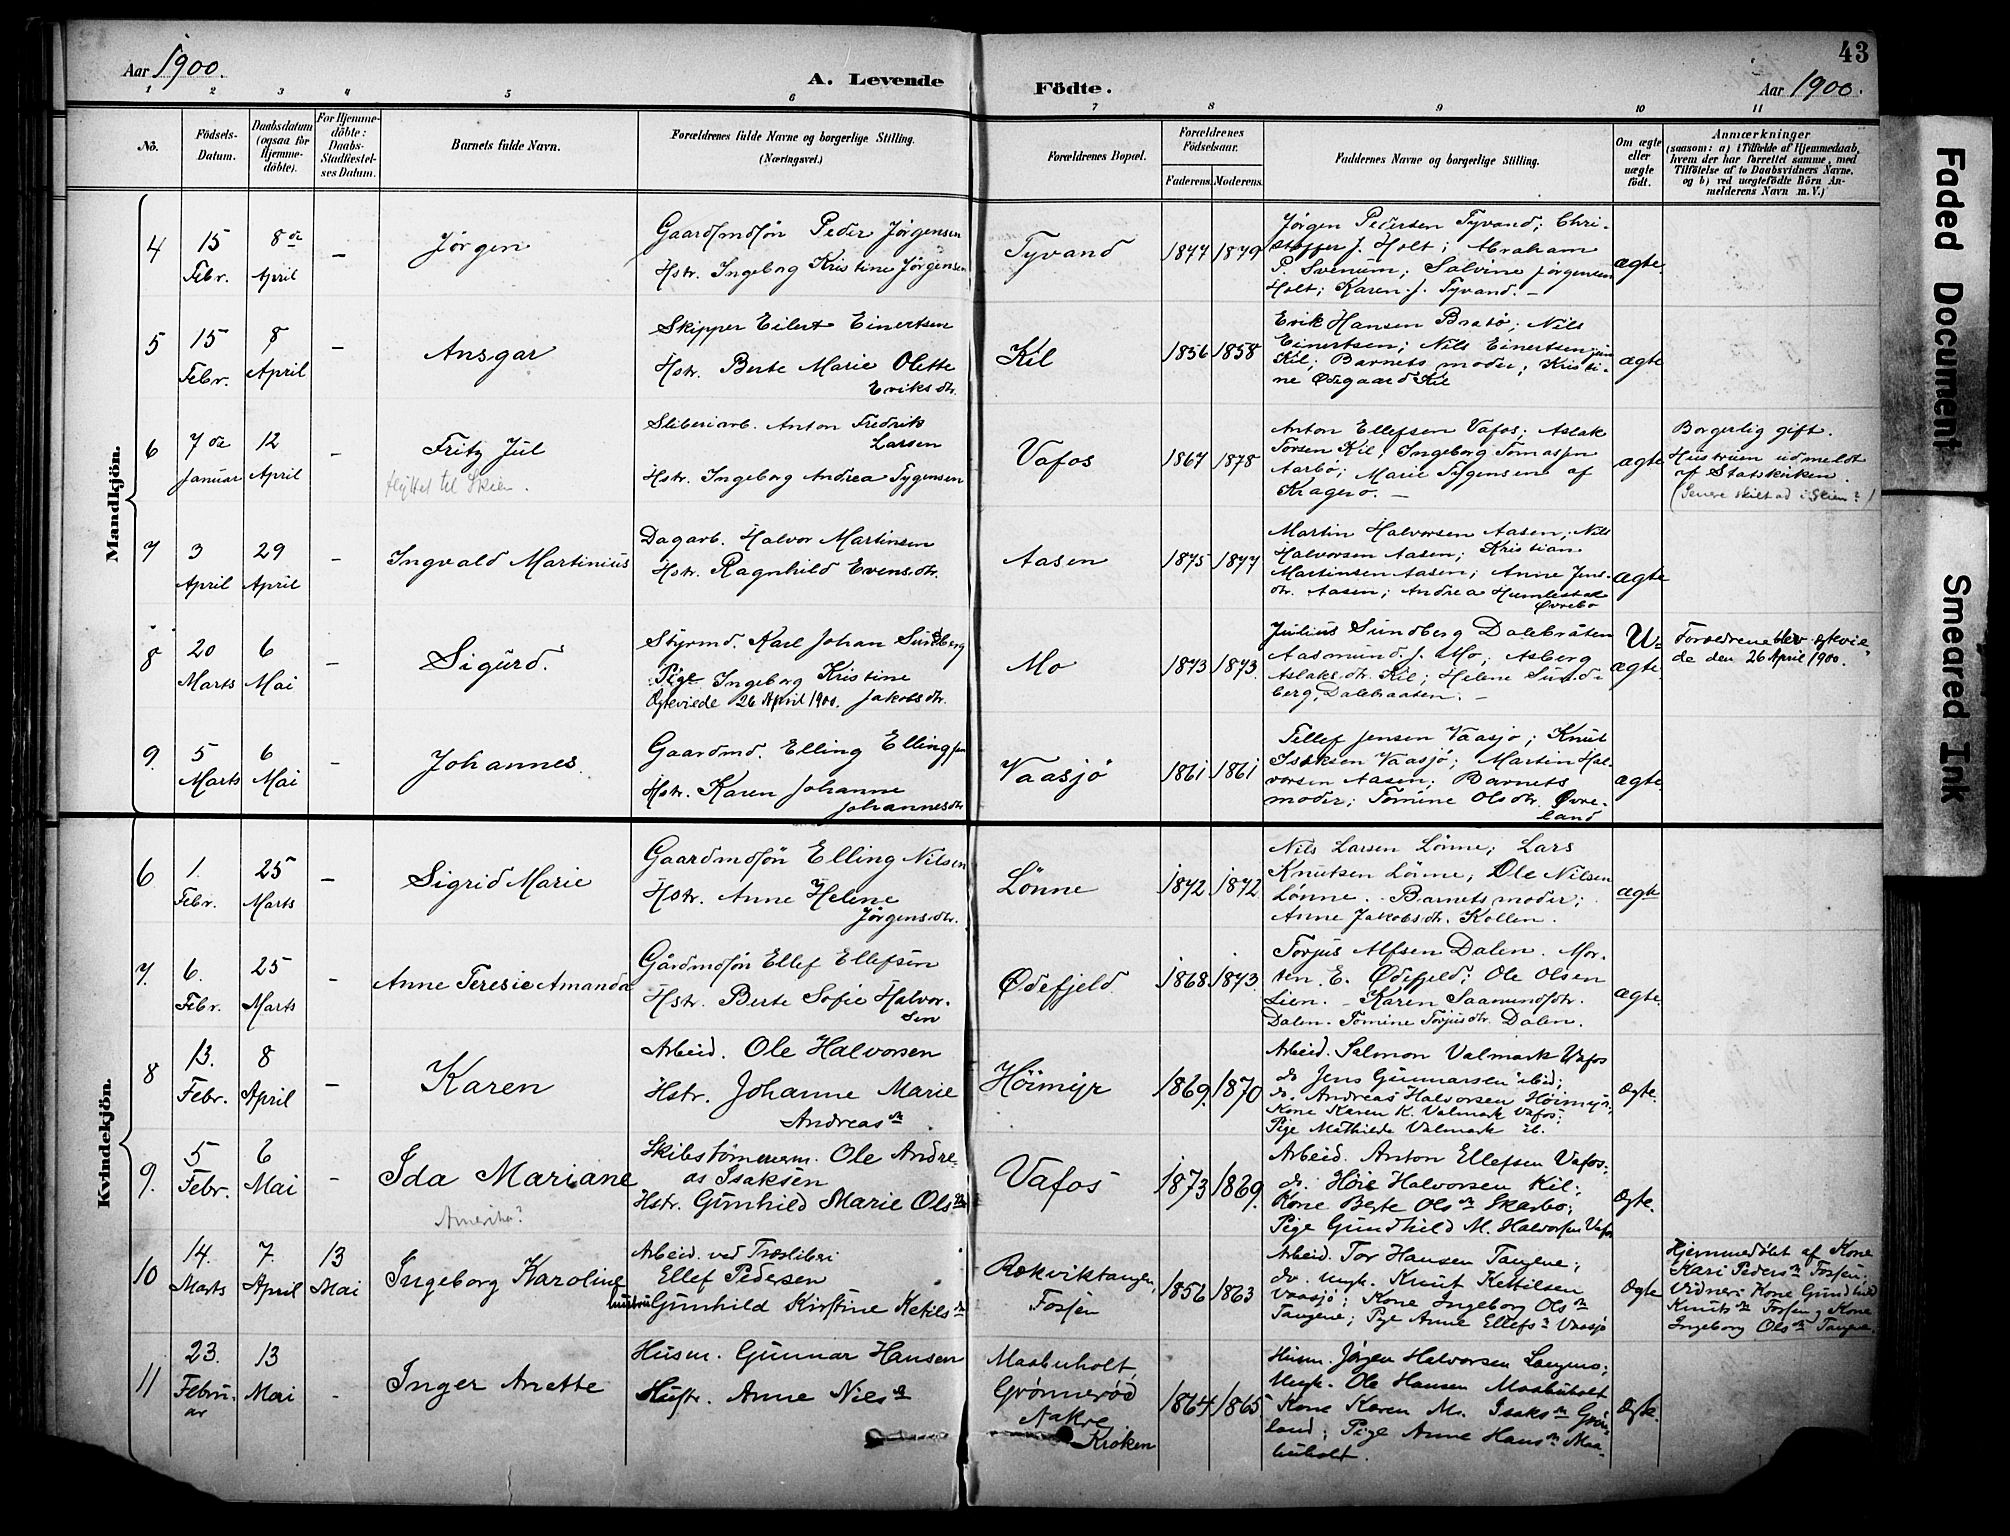 43
Aar 1900.
A. Levende Födte.
Aar 1900.
1 2 3 4 5 6 7 8 9 10 11
No.
Födsels-Datum.
Daabsdatum (ogsaa for Hjemme-döbte).
For Hjemme-döbte: Daabs-Stadfæstel-ses Datum.
Barnets fulde Navn.
Forældrenes fulde Navne og borgerlige Stilling. (Næringsvei.)
Forældrenes Bopæl.
Forældrenes Födselsaar.
Faderens. Moderens.
Faddernes Navne og borgerlige Stilling.
Om ægte eller uægte födt.
Anmærkninger
(saasom: a) i Tilfælde af Hjemmedaab,
hvem der har forrettet samme, med
Tilföielse af to Daabsvidners Navne,
og b) ved uægtefödte Börn An-
melderens Navn m. V.)
Mandkjön.
4
15 Febr.
8de April
–
Jørgen
Gaardmdsøn Peder Jørgensen
Hstr. Ingeborg Kristine Jørgensen
Tyvand
1877 1879
Jørgen Pedersen Tyvand; Chri-
stoffer J. Holt; Abraham
P. Svenum; Salvine Jørgensen
Holt; Karen J. Tyvand. –
ægte
5
15 Febr.
8 April
–
Ansgar
Skipper Eilert Einertsen
Hstr. Berte Marie Olette
Eriksdtr.
Kil
1856 1858
Erik Hansen Bratö; Nils
Einertsen; Nils Einertsen jun
Kil; Barnets moder; Kristi-
ne Ødegaard Kil
ægte
6
7de Januar
12 April
–
Fritz Jul
flyttet til Skien.
Sliberiarb. Anton Fredrik
Larsen
Hstr. Ingeborg Andrea Tygensen
Vafos
1867 1878
Anton Ellefsen Vafos; Aslak
Torsen Kil; Ingeborg Tomasen
Aarbö; Marie Tygensen af
Kragerö. –
ægte
Borgerlig gift.
Hustruen udmeldt
af Statskirken.
(Senere skilt ad i Skien?)
7
3 April
29 April
–
Ingvald Martinius
Dagarb. Halvor Martinsen
Hstr. Ragnhild Evensdtr.
Aasen
1875 1877
Martin Halvorsen Aasen; Nils
Halvorsen Aasen; Kristian
Martinsen Aasen; Anne Jens-
dtr. Aasen; Andrea Humlestok
Øvrebö
ægte
8
20 Marts
6 Mai
–
Sigurd.
Styrmd. Karl Johan Sundberg
Pige Ingeborg Kristine
Ægteviede 26 April 1900. Jakobsdtr.
Mo
1873 1873.
Julius Sundberg Dalebråten
Aasmund J. Mo; Asberg
Aslaksdtr. Kil; Helene Sund-
berg, Dalebraaten. –
U-
ægte
Forældrene blev ægtevie-
de den 26 April 1900.
9.
5 Marts
6 Mai
–
Johannes.
Gaardmd. Elling Ellingsen
Hstr. Karen Johanne
Johannesdtr
Vaasjö
1861 1861
Tellef Jensen Vaasjö; Knut
Isaksen Vaasjö; Martin Hal-
vorsen Aasen; Barnets
moder; Tomine Olsdtr. Øvre-
land
ægte
Kvindekjön.
6
1. Febr.
25 Marts
–
Sigrid Marie
Gaardmdsön Elling Nilsen
Hstr. Anne Helene
Jørgensdtr.
Lönne
1872 1872
Nils Larsen Lönne; Lars
Knutsen Lönne; Ole Nilsen
Lönne. Barnets moder;
Anne Jakobsdtr. Kollen.
ægte
7.
6. Febr.
25 Marts
–
Anne Teresie Amanda
Gårdmdsön Ellef Ellefsen
Hstr. Berte Sofie Halvor-
sen
Ødefjeld
1868 1873.
Torjus Alfsen Dalen. Mor-
ten E. Ødefjeld; Ole Olsen
Lien. – Karen Saamundsdtr.
Dalen. Tomine Torjusdtr. Dalen.
ægte.
8
13. Febr.
8 April
–
Karen
Arbeid. Ole Halvorsen
Hstr. Johanne Marie
Andreasdtr
Höimyr
1869. 1870
Arbeid. Salmon Valmark Vafos
do Jens Gunnarsen ibid;
do. Andreas Halvorsen Höimyr;
Kone Karen K. Valmark Vafos;
Pige Mathilde Valmark ib.
Ægte.
9.
5 Febr.
6 Mai
–
Ida Mariane
Amerika?
Skibstömmerm. Ole Andre-
as Isaksen
Hstr. Gunhild Marie Olsdtr
Vafos
1873 1869.
Arbeid. Anton Ellefsen Vafos;
do. Höie Halvorsen Kil;
Kone Berte Olsdtr Skarbo;
Pige Gundhild M. Halvorsen Vafos
Ægte.
10
14. Marts
7. April
13 Mai
Ingeborg Karoline
Arbeid. ved Træsliberi
Ellef Pedersen
hustru Gunhild Kirstine Ketilsdtr
Rækviktangen,
Fossen
1856 1863
Arbeid. Tor Hansen Tangene;
do. Ungk. Knut Kettilsen
Vaasjö; Kone Ingeborg Olsdtr
Tangene; Pige Anne Ellefsdtr Vaasjö
Ægte
Hjemmedöbt af Kone
Kari Pedersdtr Fossen;
Vidner: Kone Gundhild
Knutsdtr Fossen, Kone
Ingeborg Olsdtr Tangene.
11
23. Februar
13 Mai
–
Inger Anette
Husm. Gunnar Hansen
Hustr. Anne Nilsdtr
Maabuholt
Grönneröd
Aakre
Kroken
1864 1865.
Husm. Jörgen Halvorsen
Ungk. Ole Hansen Maabuholt
Kone Karen M. Isaksdtr Grön-
land; Pige Anne Hansdtr Maa-
buholt.
Ægte.
Faded Document
Smeared Ink